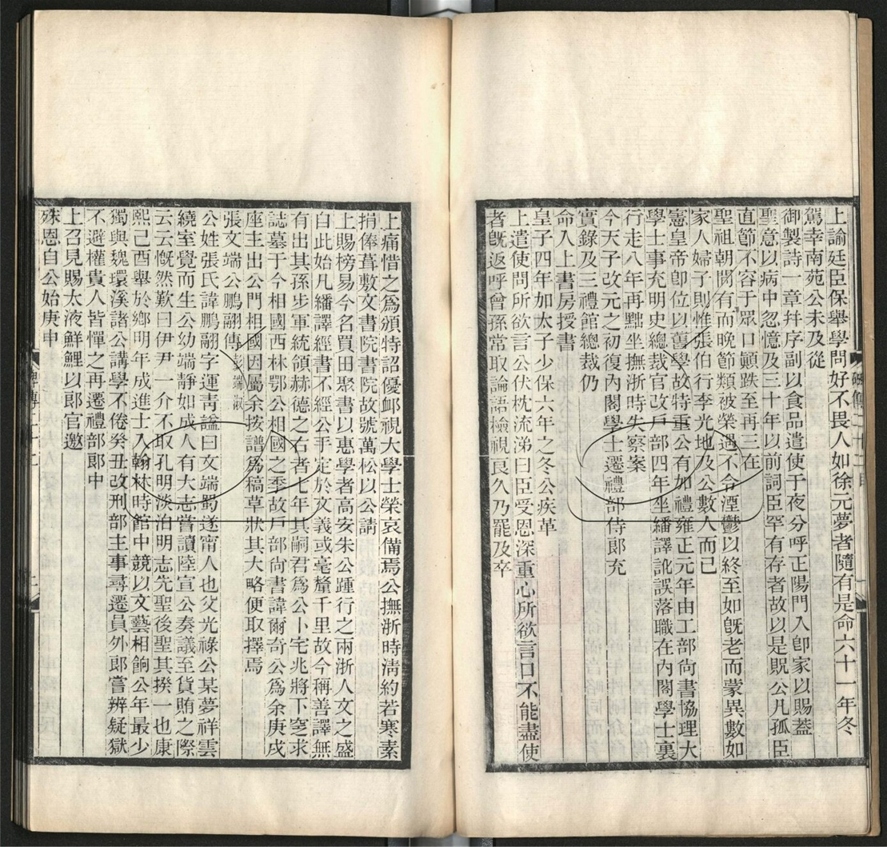 上諭廷臣保舉學問好不畏人如徐元夢者隨有是命六十一年冬
駕幸南苑公未及從
御製詩一章并序副以食品遣使于夜分呼正陽門入卽家以賜蓋
聖意以病中忽憶及三十年以前詞臣罕有存者故以是旣公凡孤臣
直節不容于眾口顚跌至再三在
聖祖朝閒有而晚節類被榮遇不合湮鬱以終至如旣老而蒙異數如
家人婦子則惟張伯行李光地及公數人而已
憲皇帝卽位以舊學故特重公有加禮雍正元年由工部尙書協理大
學士事充明史總裁官改戶部四年坐繙譯訛誤落職在內閣學士裏
行走八年再黜坐撫浙時失察案
今天子改元之初復內閣學士遷禮部侍郞充
實錄及三禮館總裁仍
命入上書房授書
皇子四年加太子少保六年之冬公疾革
上遣使問所欲言公伏枕流涕曰臣受恩深重心所欲言口不能盡使
者旣返呼曾孫常取論語檢視良久乃罷及卒
上痛惜之爲頒特詔優䘏視大學士榮哀備焉公撫浙時淸約若寒素
捐俸葺敷文書院書院故號萬松以公請
上賜榜易今名買田聚書以惠學者高安朱公踵行之兩浙人文之盛
自此始凡繙譯經書不經公手定於文義或毫釐千里故今稱善譯無
有出其孫步軍統領赫德之右者七年其嗣君爲公卜宅兆將下窆求
誌墓于今相國西林鄂公相國之季故戶部尙書諱爾奇公爲余庚戌
座主出公門相國因屬余按譜爲稿草狀其大略便取擇焉
張文端公鵬翮傳 彭端淑
公姓張氏諱鵬翮字運靑諡曰文端蜀遂甯人也父光祿公某夢祥雲
繞室覺而生公幼端靜如成人有大志嘗讀陸宣公奏議至貨賄之際
云云慨然歎曰伊尹一介不取孔明淡泊明志先聖後聖其揆一也康
熙己酉舉於鄕明年成進士入翰林時館中競以文藝相餉公年最少
獨與魏環溪諸公講學不倦癸丑改刑部主事尋遷員外郞嘗辨疑獄
不避權貴人皆憚之再遷禮部郞中
上召見賜太液鮮鯉以郞官邀
殊恩自公始庚申